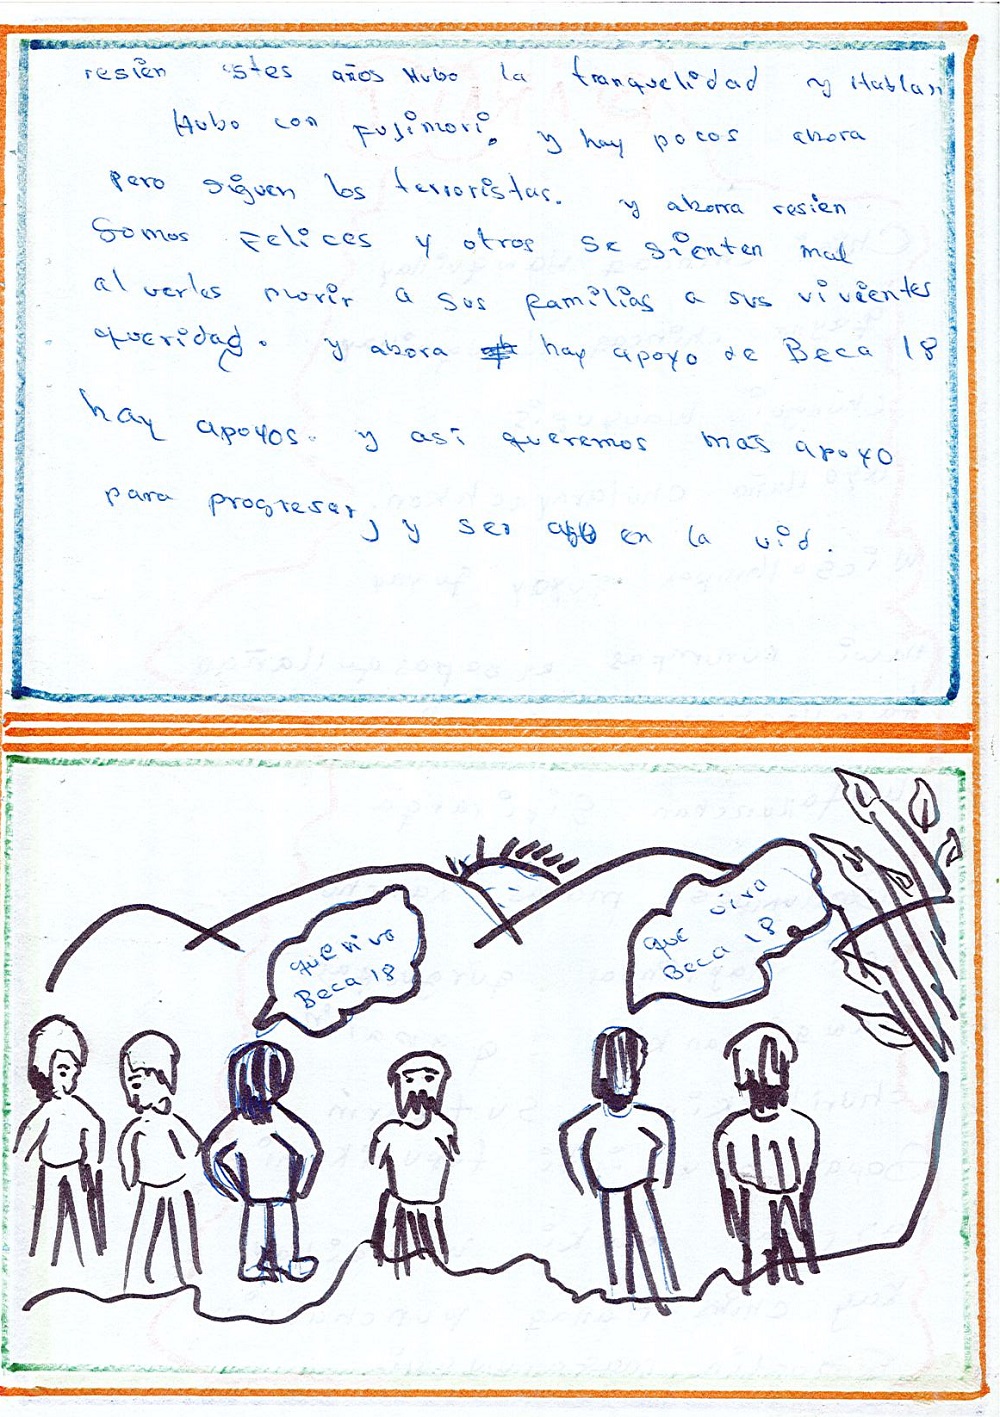 resien estes años Hubo la tranquelidad y Hablan
Hubo con fujimori, y hay pocos ahora
pero siguen los terroristas. y ahorra resien
Somos Felices y otros se sienten mal
al verles morir a sus familias a sus vivientes
queridad. y ahora hay apoyo de Beca 18
hay apoyos. y asi queremos mas apoyo
para progresar, y ser algo en la vid.
que viva
Beca 18
que viva
Beca 18